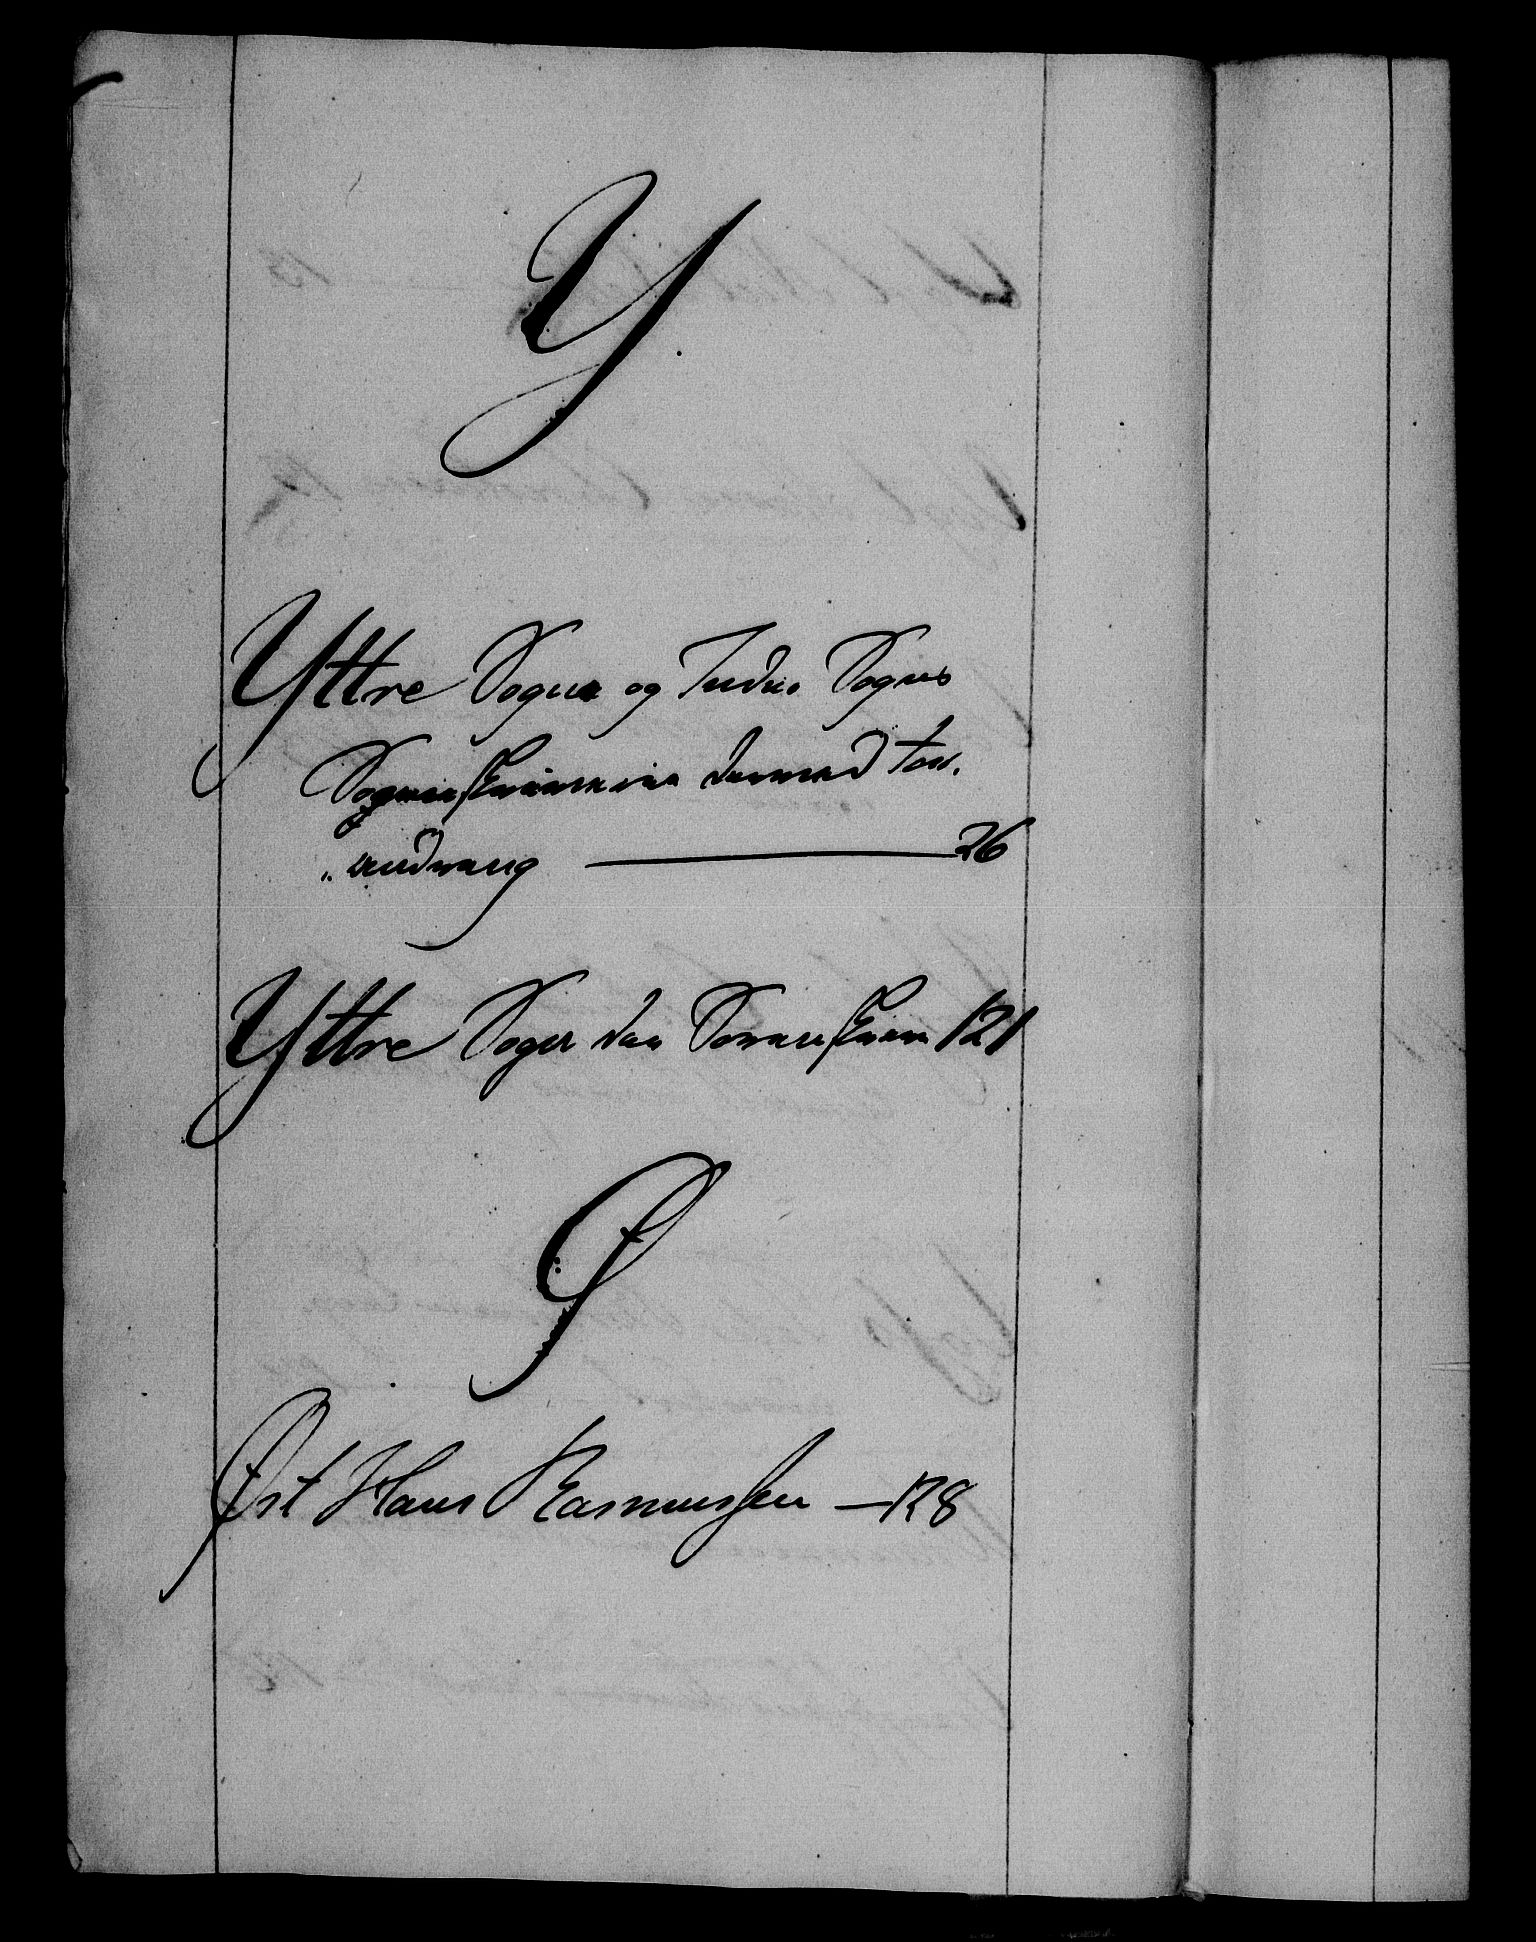 Y
Yttre Sogns og Indre Sogns
Sogneskriverie dermed for¬
„andring 26
Yttre Sogn dan Sorenskriver 121
Ø
Øst Hans Rasmussen — 128